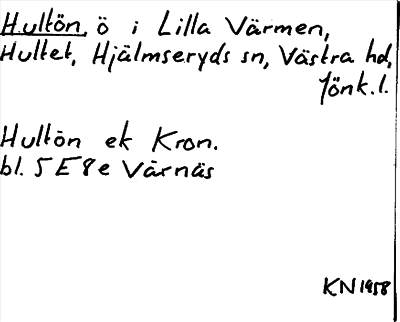 Hultön, ö i Lilla Värmen,
Hultet, Hjälmseryds sn, Västra hd,
Jönk. l.
Hultön ek Kron.
bl. 5E8e Värnäs
KN 1958